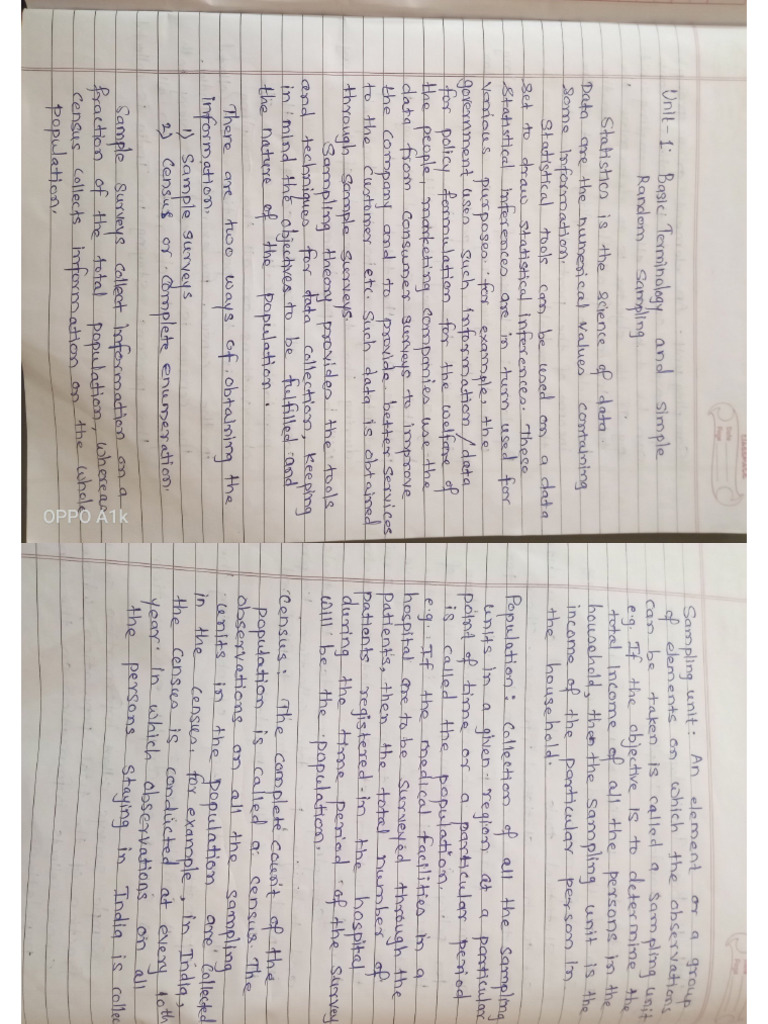 Unit-1: Basic Terminology and Simple
Random Sampling
Statistics is the science of data.
Data are the numerical values containing
some information.
Statistical tools can be used on a data
set to draw statistical inferences. These
statistical inferences are in turn used for
various purposes. for example, the
government uses such information/data
for policy formulation for the welfare of
the people, marketing companies use the
data from consumer surveys to improve
the company and to provide better services
to the customer etc. Such data is obtained
through sample surveys.
Sampling theory provides the tools
and techniques for data collection, keeping
in mind the objectives to be fulfilled and
the nature of the population.
There are two ways of obtaining the
information.
1) Sample surveys
2) Census or complete enumeration.
Sample surveys collect information on a
fraction of the total population, whereas
census collects information on the whole
population.
OPPO A1k
Sampling unit: An element or a group
of elements on which the observations
can be taken is called a sampling unit
e.g. If the objective is to determine the
total income of all the persons in the
household, then the sampling unit is the
income of the particular person in
the household.
Population: Collection of all the sampling
units in a given region at a particular
point of time or a particular period
is called the population.
e.g. If the medical facilities in a
hospital are to be surveyed through the
patients, then the total number of
patients registered in the hospital
during the time period of the survey
will be the population.
Census: The complete count of the
population is called a census. The
observations on all the sampling
units in the population are collected
in the census. for example, in India,
the census is conducted at every 10th
year in which observations on all
the persons staying in India is collec